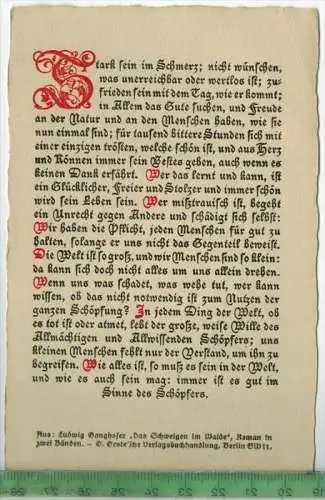 Stark sein im Schmerz; nicht wünschen,
was unerreichbar oder wertlos ist; zu-
frieden sein mit dem Tag, wie er kommt;
in Allem das Gute suchen, und Freude
an der Natur und an den Menschen haben, wie sie
nun einmal sind; für tausend bittere Stunden sich mit
einer einzigen trösten, welche schön ist, und aus Herz
und Können immer sein Bestes geben, auch wenn es
keinen Dank erfährt. Wer das lernt und kann, ist
ein Glücklicher, Freier und Stolzer und immer schön
wird sein Leben sein. Wer mißtrauisch ist, begeht
ein Unrecht gegen Andere und schädigt sich selbst:
Wir haben die Pflicht, jeden Menschen für gut zu
halten, solange er uns nicht das Gegenteil beweist.
Die Welt ist so groß, und wir Menschen sind so klein:
da kann sich doch nicht alles um uns allein drehen.
Wenn uns was schadet, was wehe tut, wer kann
wissen, ob das nicht notwendig ist zum Nutzen der
ganzen Schöpfung? In jedem Ding der Welt, ob
es tot ist oder atmet, lebt der große, weise Wille des
Allmächtigen und Allwissenden Schöpfers; uns
kleinen Menschen fehlt nur der Verstand, um ihn zu
begreifen. Wie alles ist, so muß es sein in der Welt,
und wie es auch sein mag: immer ist es gut im
Sinne des Schöpfers.
Aus: Ludwig Ganghofer „Das Schweigen im Walde", Roman in
zwei Bänden. – G. Grote'sche Verlagsbuchhandlung, Berlin SW 11.
28 27 26 25 24 23 22 21 20 19 18 17 16 15